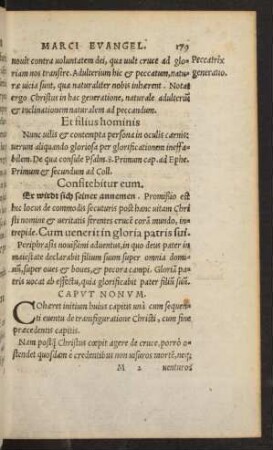 MARCI EVANGEL. 179
noult contra voluntatem dei, qua vult cruce ad glo-
riam nos transire. Adulterium hic & peccatum, natu-
ræ uicia sunt, quæ naturaliter nobis inhærent. Notat
ergo Christus in hac generatione, naturale adulteriū
& inclinationem naturalem ad peccandum.
Peccatrix
generatio.
Et filius hominis
Nunc uilis & contempta persona in oculis carnis:
uerum aliquando gloriosa per glorificationem ineffa-
bilem. De qua consule Psalm. 8. Primam cap. ad Ephe.
Primum & secundum ad Coll.
Confitebitur eum.
Er wirdt sich seiner annemen. Promissio est
hic locus de commodis secuturis post hanc uitam Chri
sti nomine & ueritatis ferentes crucē corā mundo, in-
trepide. Cum uenerit in gloria patris sui.
Periphrasis nouissimi aduentus, in quo deus pater in
maiestate declarabit filium suum super omnia domi-
nū, super oues & boues, & pecora campi. Gloriā pa-
tris uocat ab effectu, quia glorificabit pater filiū suū.
CAPVT NONVM.
COhæret initium huius capitis unā cum sequen-
ti euentu de transfiguratione Christi, cum fine
præcedentis capitis.
Nam postq̃ Christus cœpit agere de cruce, porrò o-
stendet quosdam è credentibus non uisuros mortē, neq;
M 2 uenturos